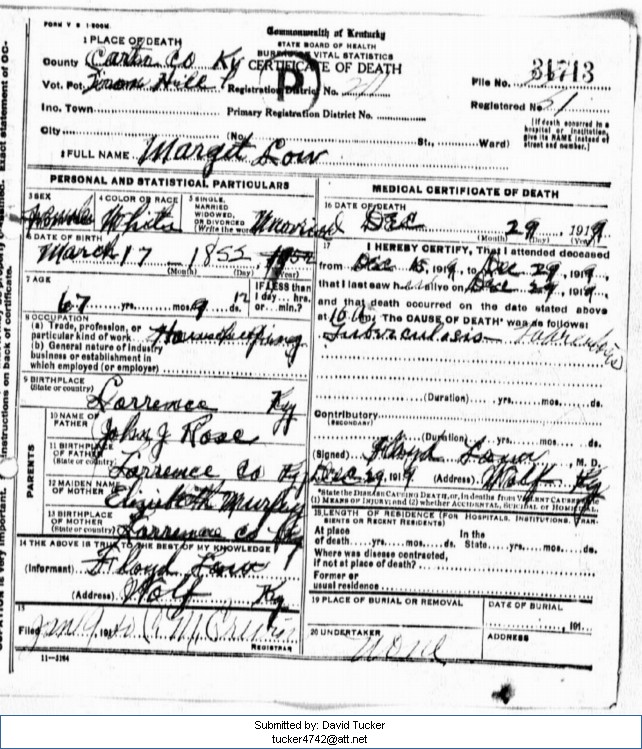 FORM V S 1-500M.
Commonwealth of Kentucky
STATE BOARD OF HEALTH
BUREAU OF VITAL STATISTICS
CERTIFICATE OF DEATH
1 PLACE OF DEATH
County Carter Co Ky
Vot. Pct. Hill
Registration District No.
P
File No. 31713
Inc. Town
Primary Registration District No.
Registered No. 51
City (No. St., Ward)
[If death occurred in a hospital or institution, give its NAME instead of street and number.]
2 FULL NAME Margit Low
PERSONAL AND STATISTICAL PARTICULARS
3 SEX Female
4 COLOR OR RACE White
5 SINGLE, MARRIED WIDOWED, OR DIVORCED (Write the word) Married
6 DATE OF BIRTH
March 17 - 1852
(Month) (Day) (Year)
7 AGE
67 yrs. 9 mos. 12 ds.
IF LESS than 1 day... hrs. or... min.?
8 OCCUPATION
(a) Trade, profession, or particular kind of work Housekeeping
(b) General nature of industry business or establishment in which employed (or employer)
9 BIRTHPLACE
(State or country) Lorrence Ky
PARENTS
10 NAME OF FATHER John J Rose
11 BIRTHPLACE OF FATHER (State or country) Lorrence Co Ky
12 MAIDEN NAME OF MOTHER Elizibeth
13 BIRTHPLACE OF MOTHER (State or country) Lorrence Co Ky
14 THE ABOVE IS TRUE TO THE BEST OF MY KNOWLEDGE
(Informant) Floyd Low
(Address) Wolf Ky
15
Filed Jan 9, 1920
REGISTRAR
11-3184
MEDICAL CERTIFICATE OF DEATH
16 DATE OF DEATH
Dec 29, 1919
(Month) (Day) (Year)
17 I HEREBY CERTIFY, That I attended deceased
from Dec 15, 1919, to Dec 29, 1919,
that I last saw h alive on Dec 29, 1919,
and that death occurred on the date stated above
at 10 The CAUSE OF DEATH was as follows:
Tuberculosis
(Duration) yrs. mos. ds.
Contributory
(SECONDARY)
(Duration) yrs. mos. ds.
(Signed) Floyd, M. D.
Dec 29, 1919 (Address) Wolf Ky
*State the DISEASE CAUSING DEATH, or, in deaths from VIOLENT CAUSES, state (1) MEANS OF INJURY; and (2) whether ACCIDENTAL, SUICIDAL or HOMICIDAL.
18 LENGTH OF RESIDENCE (FOR HOSPITALS, INSTITUTIONS, TRANSIENTS OR RECENT RESIDENTS)
At place of death yrs. mos. ds. In the State yrs. mos. ds.
Where was disease contracted, if not at place of death?
Former or usual residence
19 PLACE OF BURIAL OR REMOVAL
DATE OF BURIAL
, 191
20 UNDERTAKER
None
ADDRESS
Exact statement of OC-
instructions on back of certificate.
CUPATION is very important.
Submitted by: David Tucker
tucker4742@att.net